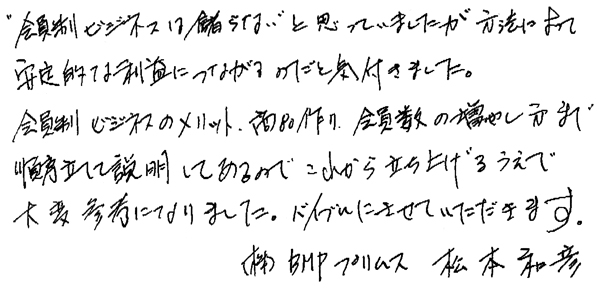 "会員制ビジネスは儲らない"と思っていましたが方法によって
安定的な利益につながるのだと気付きました。
会員制ビジネスのメリット、商品作り、会員数の増やし方まで
順序立てて説明してあるのでこれから立ち上げるうえで
大変参考になりました。バイブルにさせていただきます。
(株)BMPプリムス 松本和彦